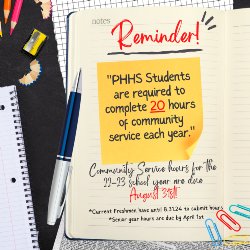 notes
Reminder!
"PHHS Students
are required to
complete 20 hours
of community
service each year."
Community Service hours for the
22-23 school year are due
August 31st!
*Current Freshmen have until 8.31.24 to submit hours
*Senior year hours are due by April 1st